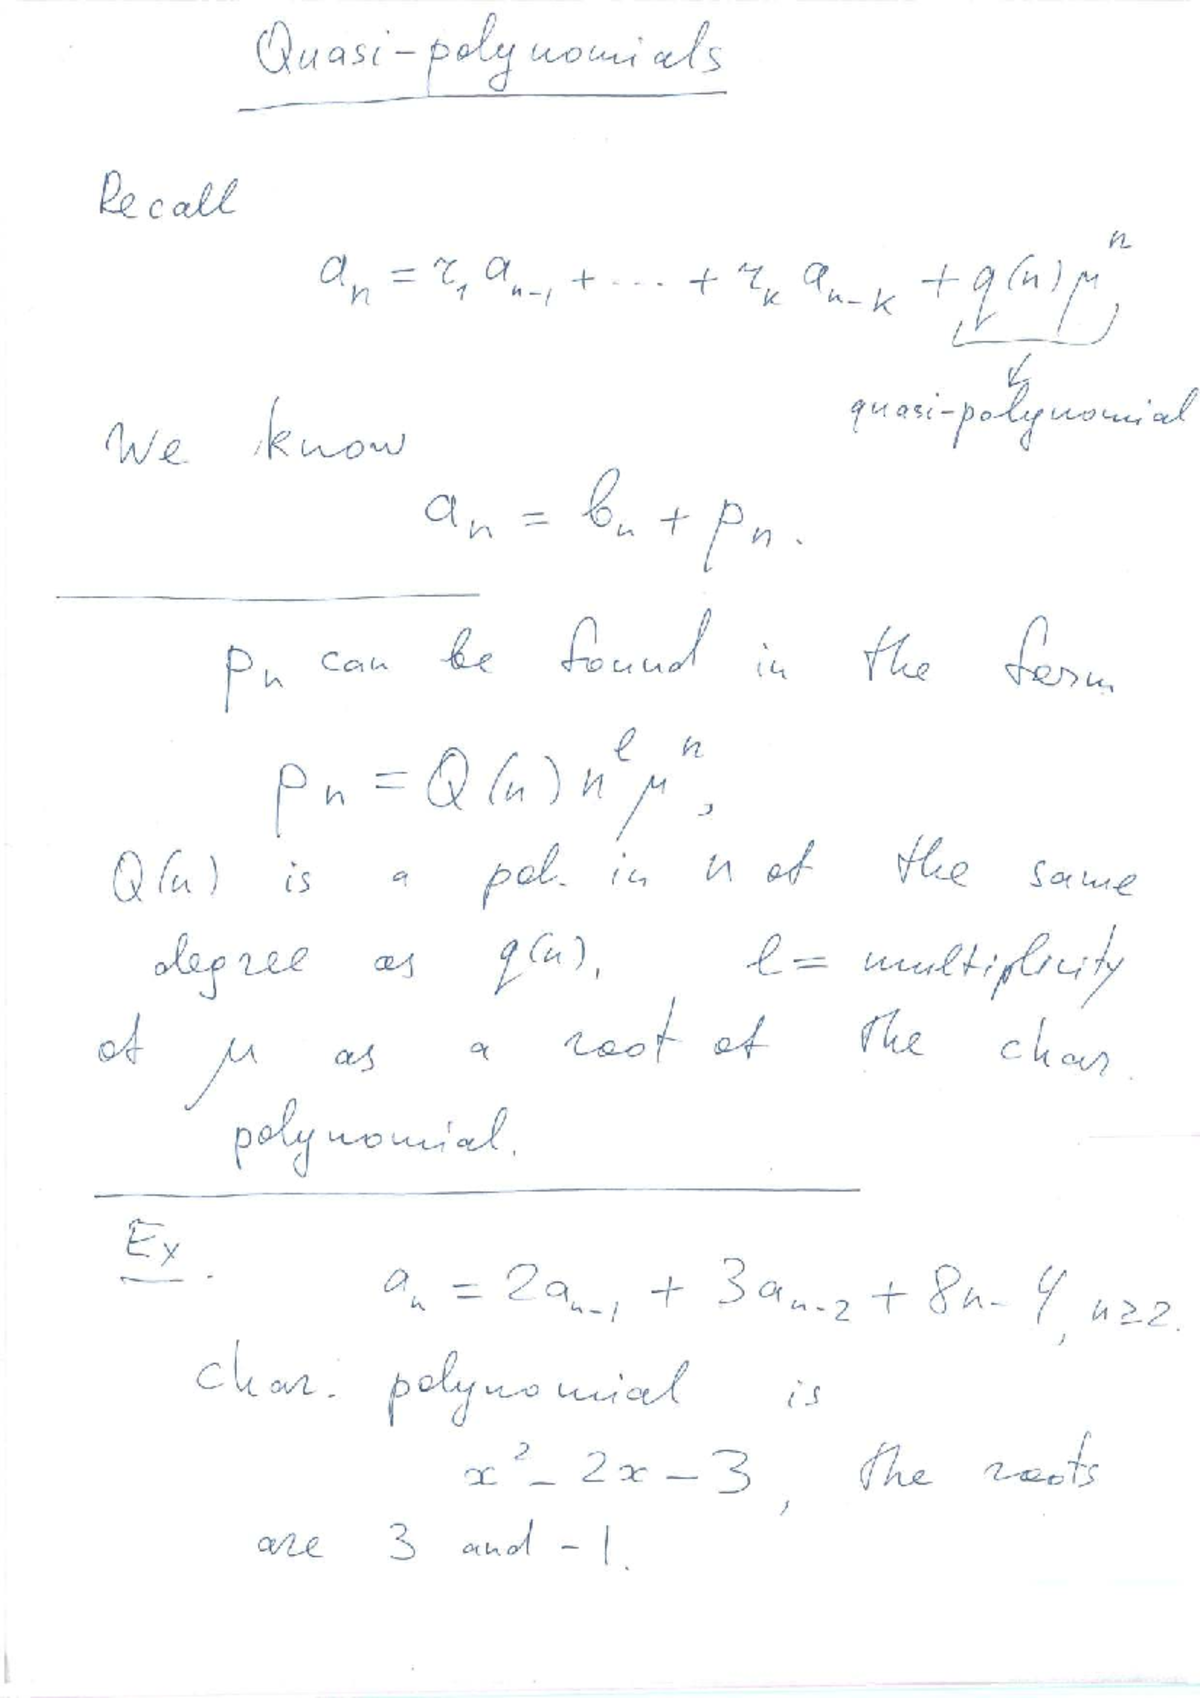 Quasi-polynomials
Recall
aₙ = r₁ aₙ₋₁ + ... + rₖ aₙ₋ₖ + q(n) μⁿ,
quasi-polynomial
We know
aₙ = bₙ + pₙ.
pₙ can be found in the form
pₙ = Q(n) nˡ μⁿ,
Q(n) is a pol. in n of the same
degree as q(n), l = multiplicity
of μ as a root of the char.
polynomial.
Ex.
aₙ = 2aₙ₋₁ + 3aₙ₋₂ + 8n - 4, n≥2.
char. polynomial is
x² - 2x - 3, the roots
are 3 and -1.